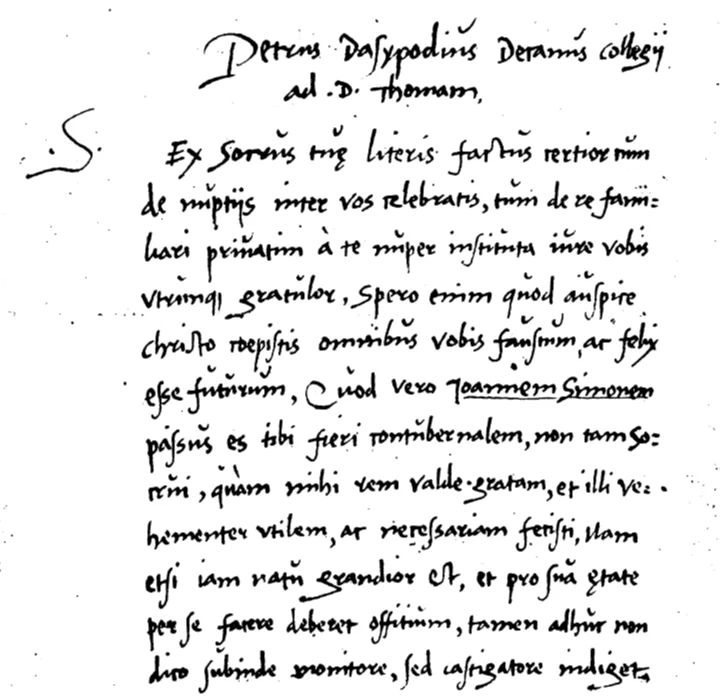 Petrus Dasypodius Decanus collegii
ad .D. Thomam.
.S.
Ex Socrus tuę literis factus certior tum
de nuptijs inter vos celebratis, tum de re fami=
liari priuatim à te nuper instituta iure vobis
vtrunq; gratulor, Spero enim quod auspice
christo coepistis omnibus vobis faustum, ac felix
esse futurum, Quod vero Joannem Simonem
passus es tibi fieri contubernalem, non tam So=
crui, quàm mihi rem valde gratam, et illi ve=
hementer vtilem, ac necessariam fecisti, Nam
etsi iam natu grandior est, et pro sua ętate
per se facere deberet offitium, tamen adhuc non
dico subinde monitore, sed castigatore indiget,